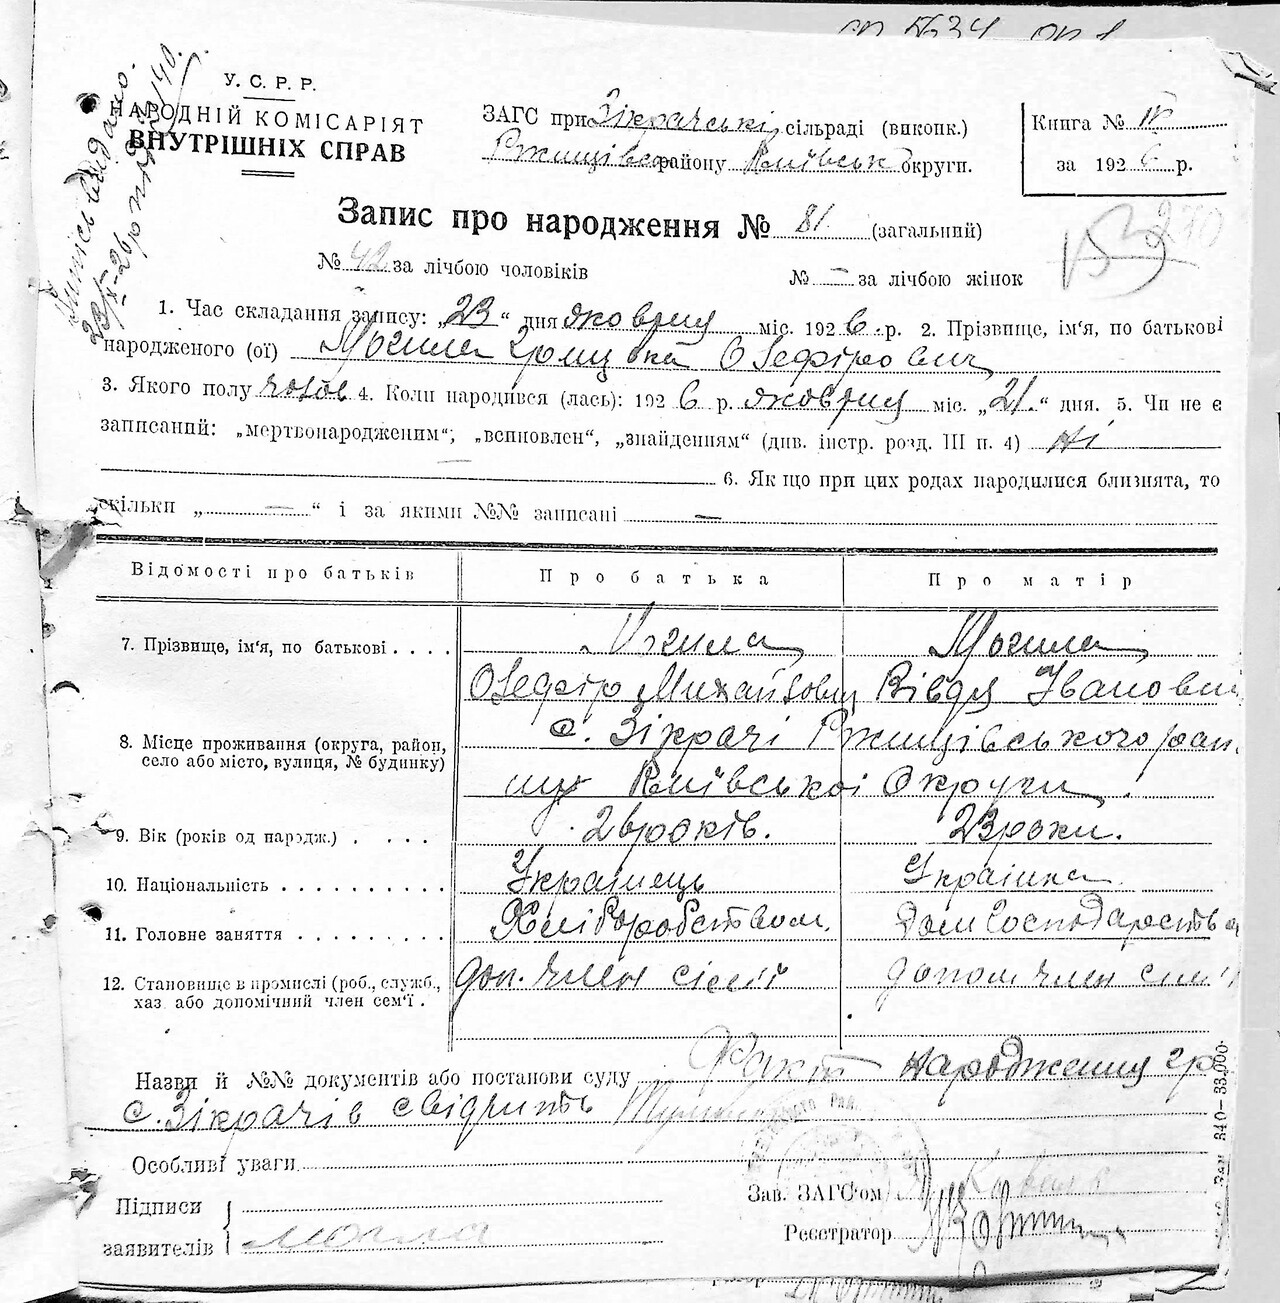 У. С. Р. Р.
НАРОДНІЙ КОМІСАРІЯТ
ВНУТРІШНІХ СПРАВ
ЗАГС при Зікрачські сільраді (викопк.)
Ржищівсь району Київськ округи.
Книга № ІІ
за 1926 р.
Запис про народження № 81. (загальний)
№ 42 за лічбою чоловіків № — за лічбою жінок
1. Час складання запису: „23“ дня яковрия міс. 1926 р. 2. Прізвище, ім'я, по батькові
народженого (ої) Могила Грицька Олефірович
3. Якого полу чолов 4. Коли народився (лась): 1926 р. яковрия міс. „21.“ дня. 5. Чи не є
записаний: „мертвонародженим“, „всиновлен“, „знайденням“ (див. інстр. розд. III п. 4) Ні
6. Як що при цих родах народилися близнята, то
скільки „ — “ і за якими №№ записані —
Відомості про батьків Про батька Про матір
7. Прізвище, ім'я, по батькові . . . . Могила Могила
Олефір Михайлович Вівдя Івановн
8. Місце проживання (округа, район, с. Зікрачі Ржищівського рай.
село або місто, вулиця, № будинку) ну Київської Округи.
9. Вік (років од нардж.) . . . . років. 23 роки.
10. Національність . . . . . . . . . . Українець Українка
11. Головне заняття . . . . . . . . . Хліборобством. Дом Господарство
12. Становище в промислі (роб., служб., доп. член сімії допом член сімї
хаз. або допомічний член сем'ї .
Назви й №№ документів або постанови суду Факт народження гр.
с. Зікрачів свідчить
Особливі уваги
Підписи
заявителів Могла
Зав. ЗАГС'ом
Реєстратор